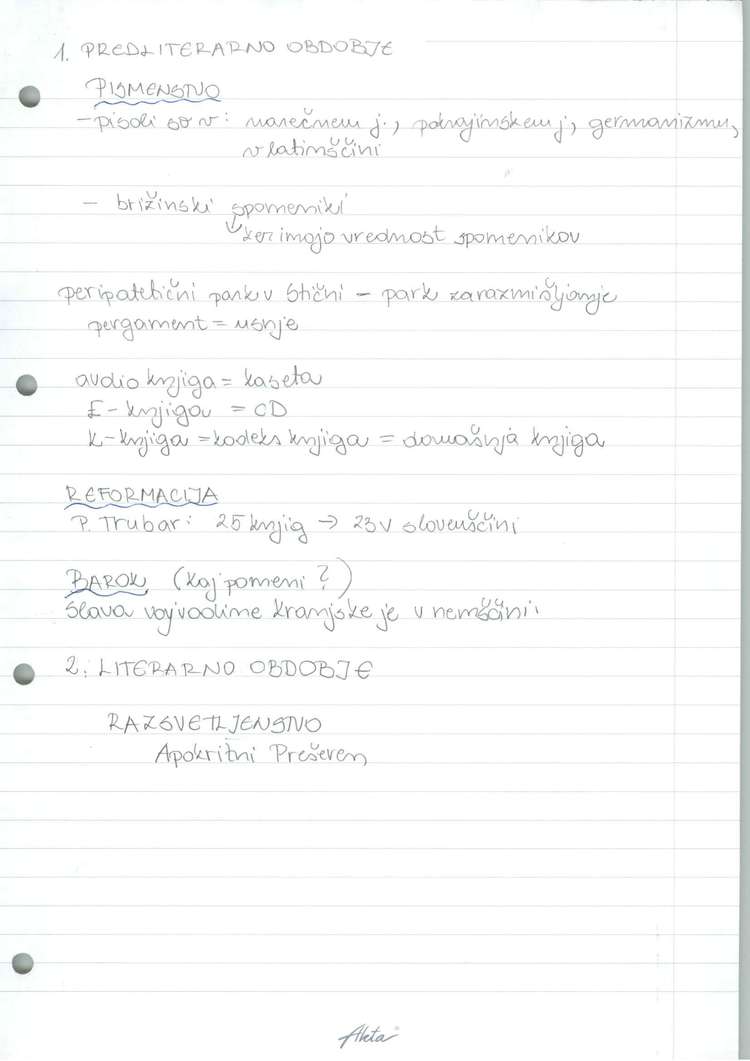 1. PREDLITERARNO OBDOBJE
PISMENSTVO
- pisali so v: narečnem j., pokrajinskem j., germanizmu,
v latinščini
- brižinski spomeniki
ker imajo vrednost spomenikov
peripatetični park v Stični - park za razmišljanje
pergament = usnje
avdio knjiga = kaseta
E - knjiga = CD
K - knjiga = kodeks knjiga = domašnja knjiga
REFORMACIJA
P. Trubar: 25 knjig → 23 v slovenščini
BAROK (kaj pomeni?)
Slava vojvodine kranjske je v nemščini
2. LITERARNO OBDOBJE
RAZSVETLJENSTVO
Apokritni Prešeren
Akta